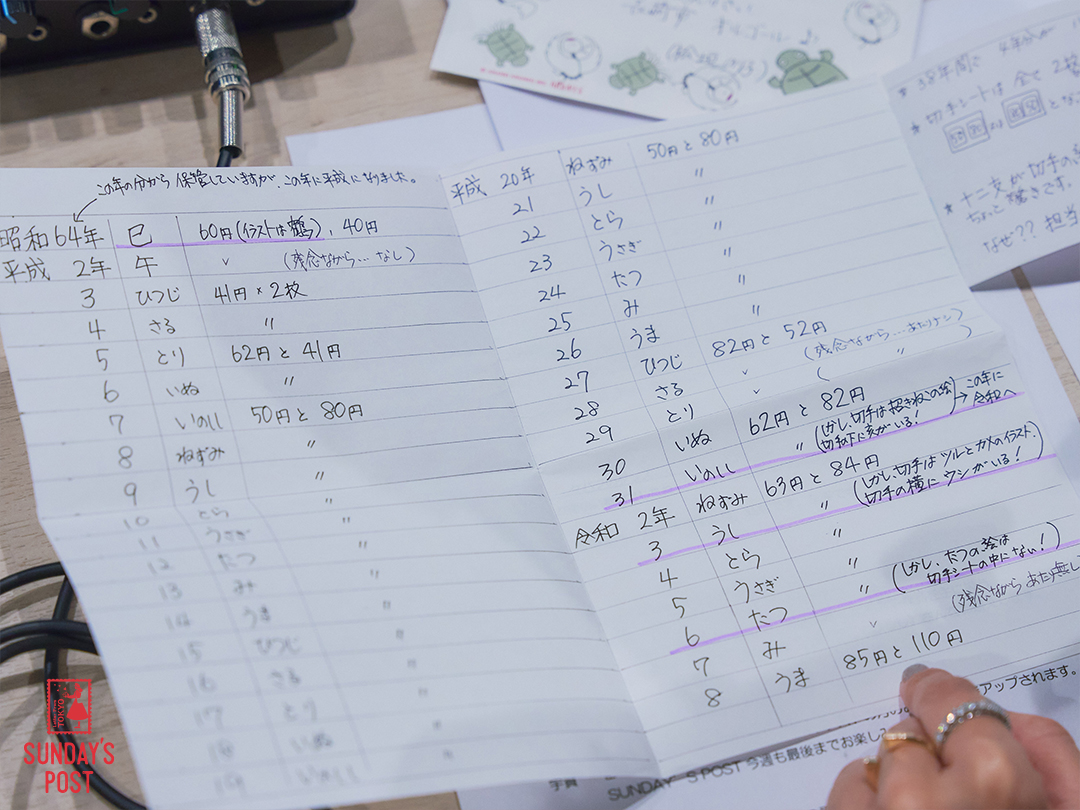 この年の分から保管していますが、この年に平成になりました。
昭和64年 巳 60円(イラストは鶴)、40円
平成 2年 午 〃 (残念ながら…なし)
3 ひつじ 41円×2枚
4 さる 〃
5 とり 62円と41円
6 いぬ 〃
7 いのしし 50円と80円
8 ねずみ 〃
9 うし 〃
10 とら 〃
11 うさぎ 〃
12 たつ 〃
13 み 〃
14 うま 〃
15 ひつじ 〃
16 さる 〃
17 とり 〃
18 いぬ 〃
19 いのしし
平成 20年 ねずみ 50円と80円
21 うし 〃
22 とら 〃
23 うさぎ 〃
24 たつ 〃
25 み 〃
26 うま 82円と52円
27 ひつじ 〃 (残念ながら…あたりナシ)
28 さる 〃 ( 〃 )
29 とり 62円と82円
30 いぬ 〃 (しかし、切手は招きねこの絵
切手の下に亥がいる!) → この年に
31 いのしし 令和へ
令和 2年 ねずみ 63円と84円
3 うし 〃 (しかし、切手はツルとカメのイラスト、
切手の横にウシがいる!)
4 とら 〃
5 うさぎ 〃
6 たつ 〃 (しかし、たつの絵は
切手シートの中にない!)
7 み 〃 (残念ながら あたり無し
8 うま 85円と110円
オルゴール♪
★ 38年間で 4年分が
★ 切手シートは全て2枚
★ 十二支が切手の
ちょっと驚きです。
なぜ?? 担当
アップされます。
SUNDAY'S POST 今週も最後までお楽し
TOKYO
SUNDAY'S
POST